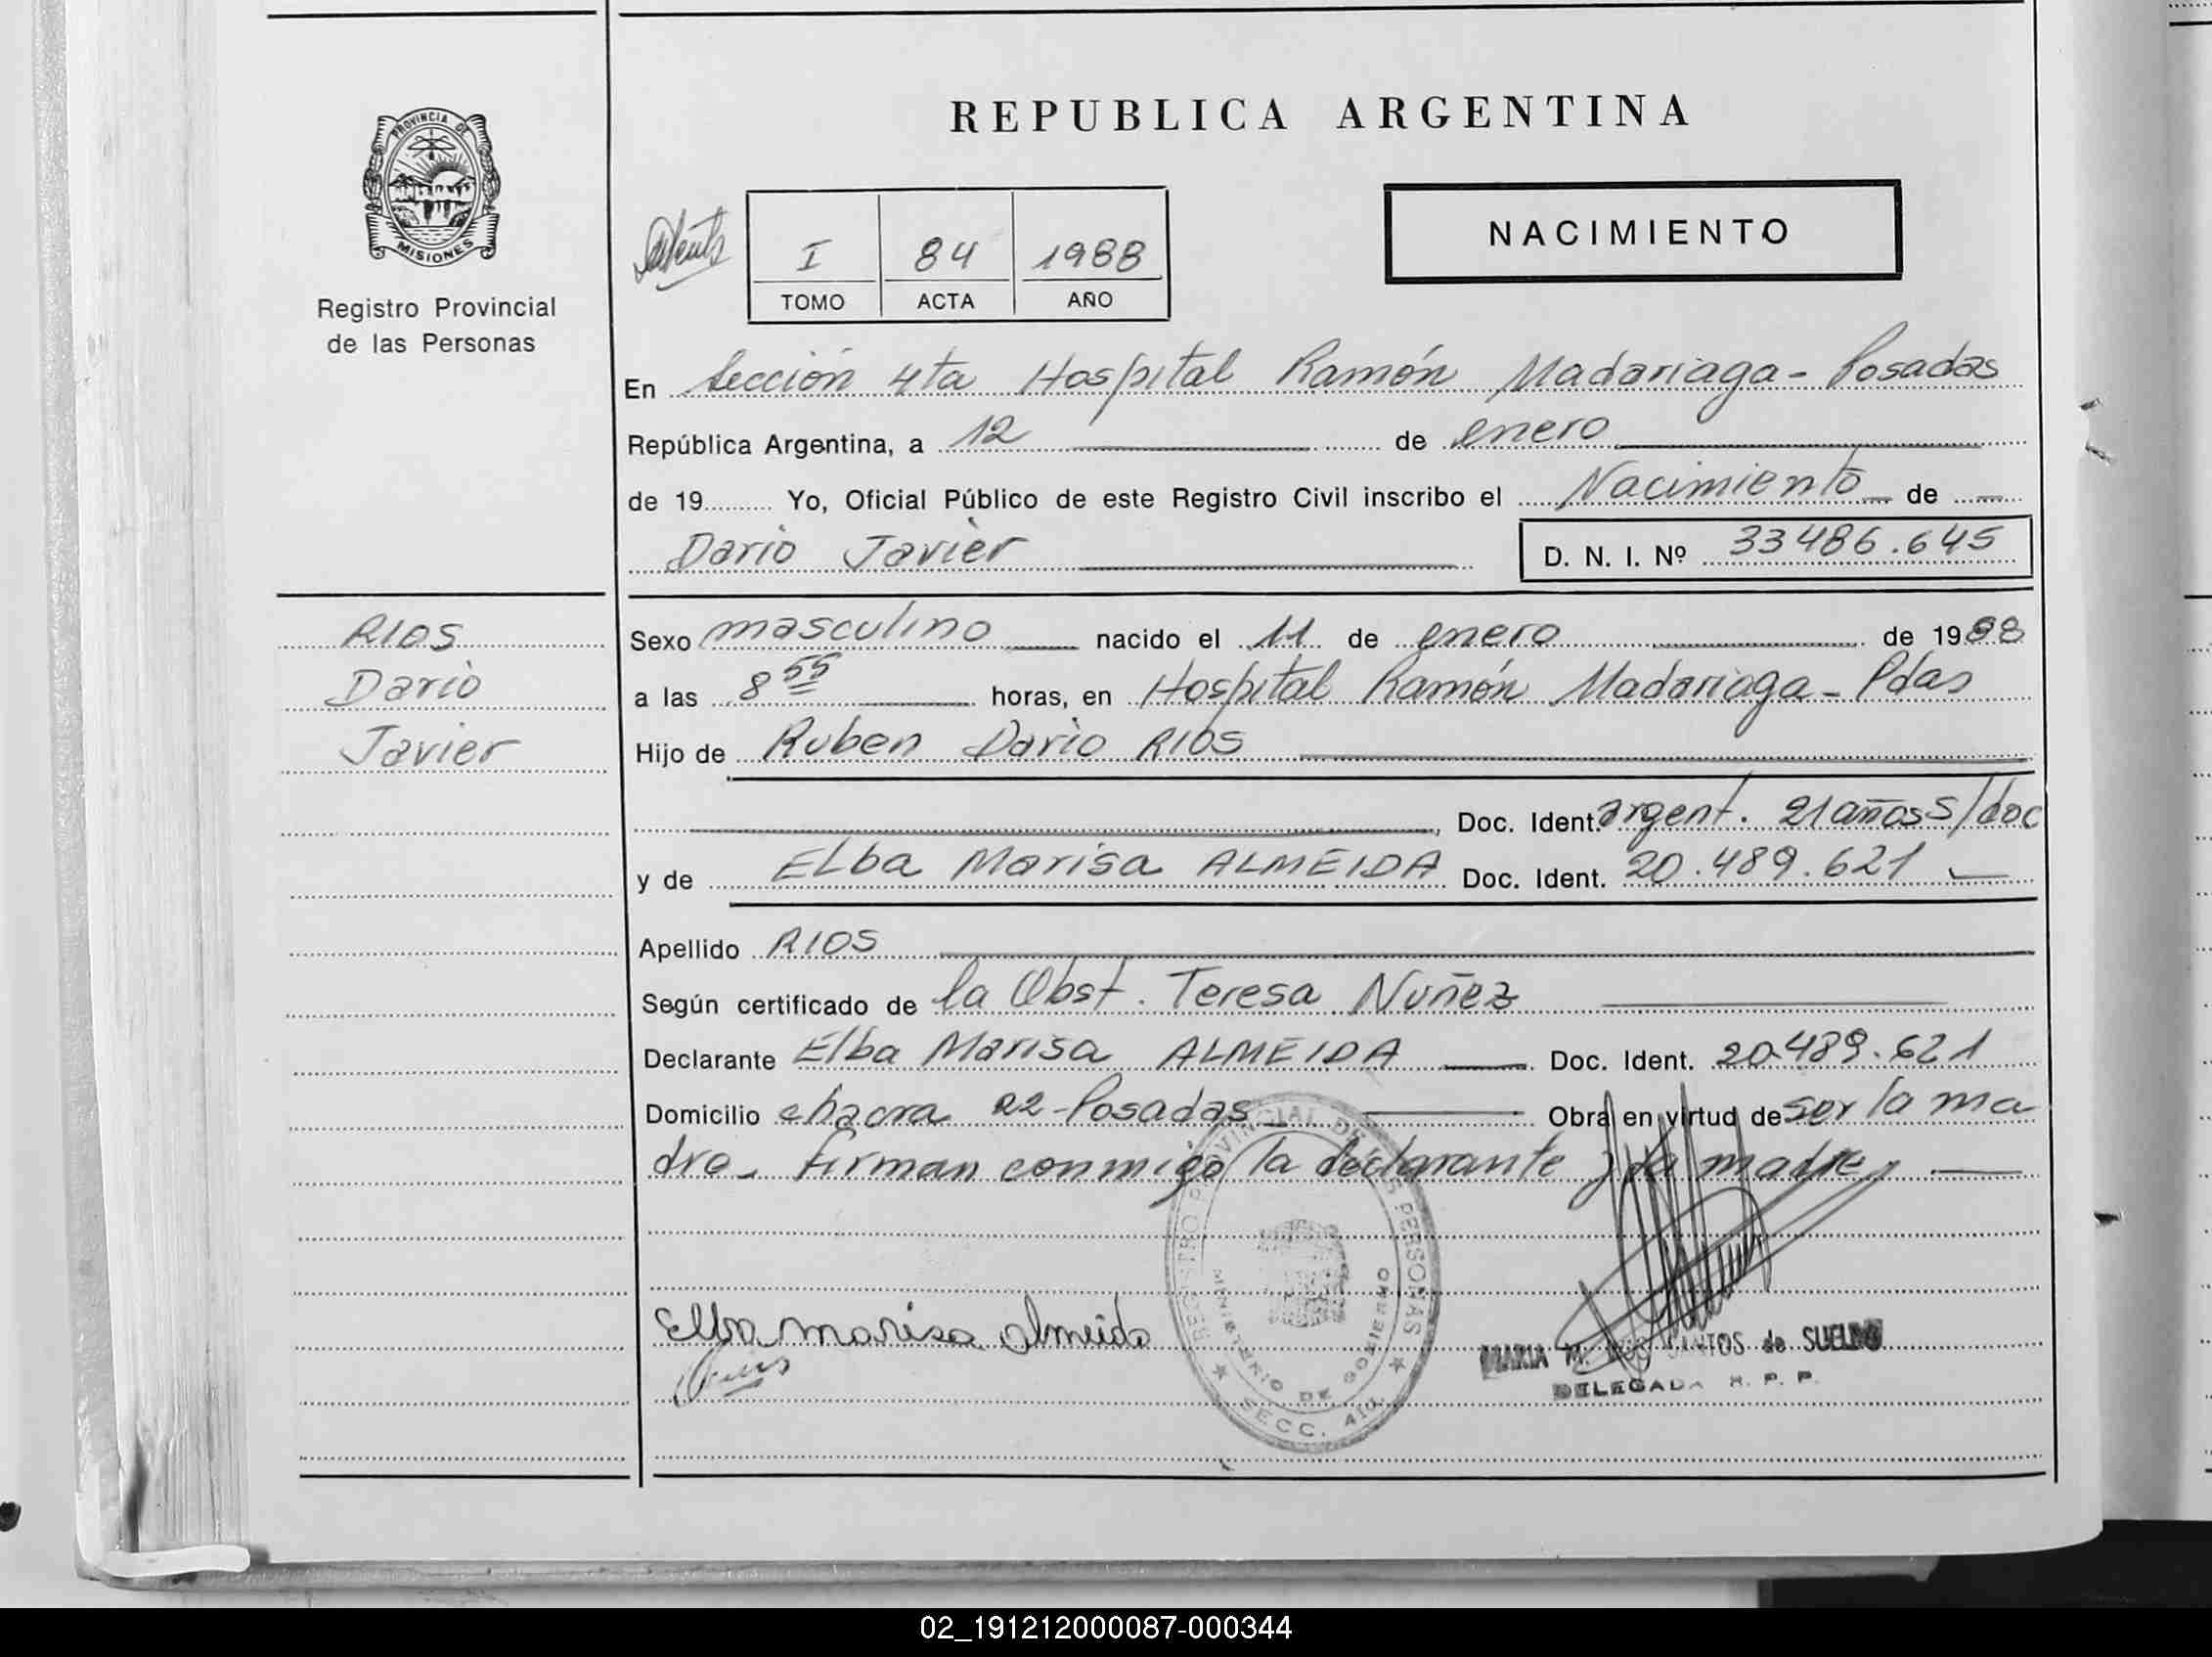 REPUBLICA ARGENTINA
PROVINCIA DE
MISIONES
Registro Provincial
de las Personas
I 84 1988
TOMO ACTA AÑO
NACIMIENTO
En Sección 4ta Hospital Ramón Madariaga - Posadas
República Argentina, a 12 de enero
de 19 Yo, Oficial Público de este Registro Civil inscribo el Nacimiento de
Dario Javier D. N. I. Nº 33486.645
RIOS
Dario
Javier
Sexo masculino nacido el 11 de enero de 1988
a las 8 55 horas, en Hospital Ramón Madariaga - Pdas
Hijo de Ruben Dario RIOS
, Doc. Ident. argent. 21 años S/doc
y de Elba Marisa ALMEIDA Doc. Ident. 20.489.621
Apellido RIOS
Según certificado de la Obst. Teresa Nuñez
Declarante Elba Marisa ALMEIDA Doc. Ident. 20.489.621
Domicilio chacra 22 - Posadas Obra en virtud de ser la ma
dre. firman conmigo la declarante y la madre
REGISTRO PROVINCIAL DE LAS PERSONAS
MINISTERIO DE GOBIERNO
SECC. 4ta.
Elba marisa almeida
MARIA M. SANTOS de
DELEGADA R. P. P.
02_191212000087-000344